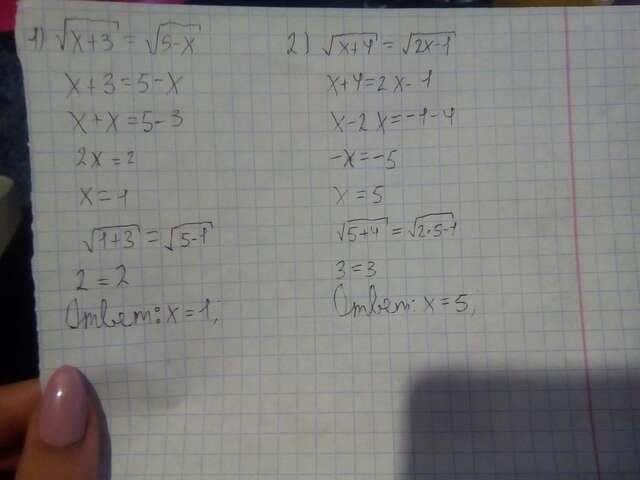 1) √x+3 = √5-x
x+3=5-x
x+x=5-3
2x=2
x=1
√1+3 = √5-1
2=2
Ответ: x=1;
2) √x+4 = √2x-1
x+4=2x-1
x-2x=-1-4
-x=-5
x=5
√5+4 = √2•5-1
3=3
Ответ: x=5;